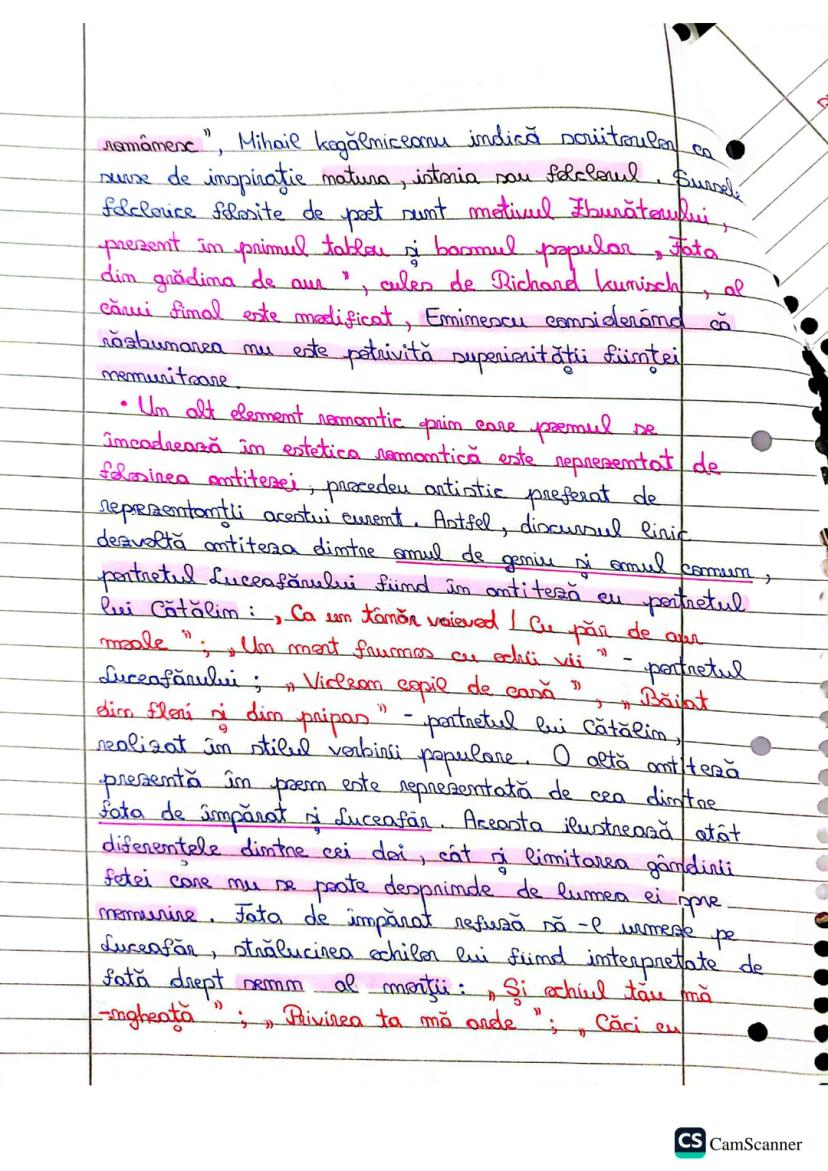 românesc", Mihail Kogălniceanu indică scriitorilor ca
surse de inspirație natura, istoria sau folclorul. Sursele
folclorice folosite de poet sunt motivul Zburătorului,
prezent în primul tablou și basmul popular „Fata
din grădina de aur", cules de Richard Kunisch, al
cărui final este modificat, Eminescu considerând că
răzbunarea nu este potrivită superiorității ființei
nemuritoare.
• Un alt element romantic prin care poemul se
încadrează în estetica romantică este reprezentat de
folosirea antitezei, procedeu artistic preferat de
reprezentanții acestui curent. Astfel, discursul liric
dezvoltă antiteza dintre omul de geniu și omul comun,
portretul Luceafărului fiind în antiteză cu portretul
lui Cătălin: „Ca un tânăr voievod / Cu păr de aur
moale"; „Un mort frumos cu ochii vii" - portretul
Luceafărului; „Viclean copil de casă", „Băiat
din flori și din pripas" - portretul lui Cătălin,
realizat în stilul vorbirii populare. O altă antiteză
prezentă în poem este reprezentată de cea dintre
fata de împărat și Luceafăr. Aceasta ilustrează atât
diferențele dintre cei doi, cât și limitarea gândirii
fetei care nu se poate desprinde de lumea ei spre
nemurire. Fata de împărat refuză să-l urmeze pe
Luceafăr, strălucirea ochilor lui fiind interpretate de
fată drept semn al morții: „Și ochiul tău mă
-ngheață"; „Privirea ta mă arde"; „Căci eu
CS CamScanner